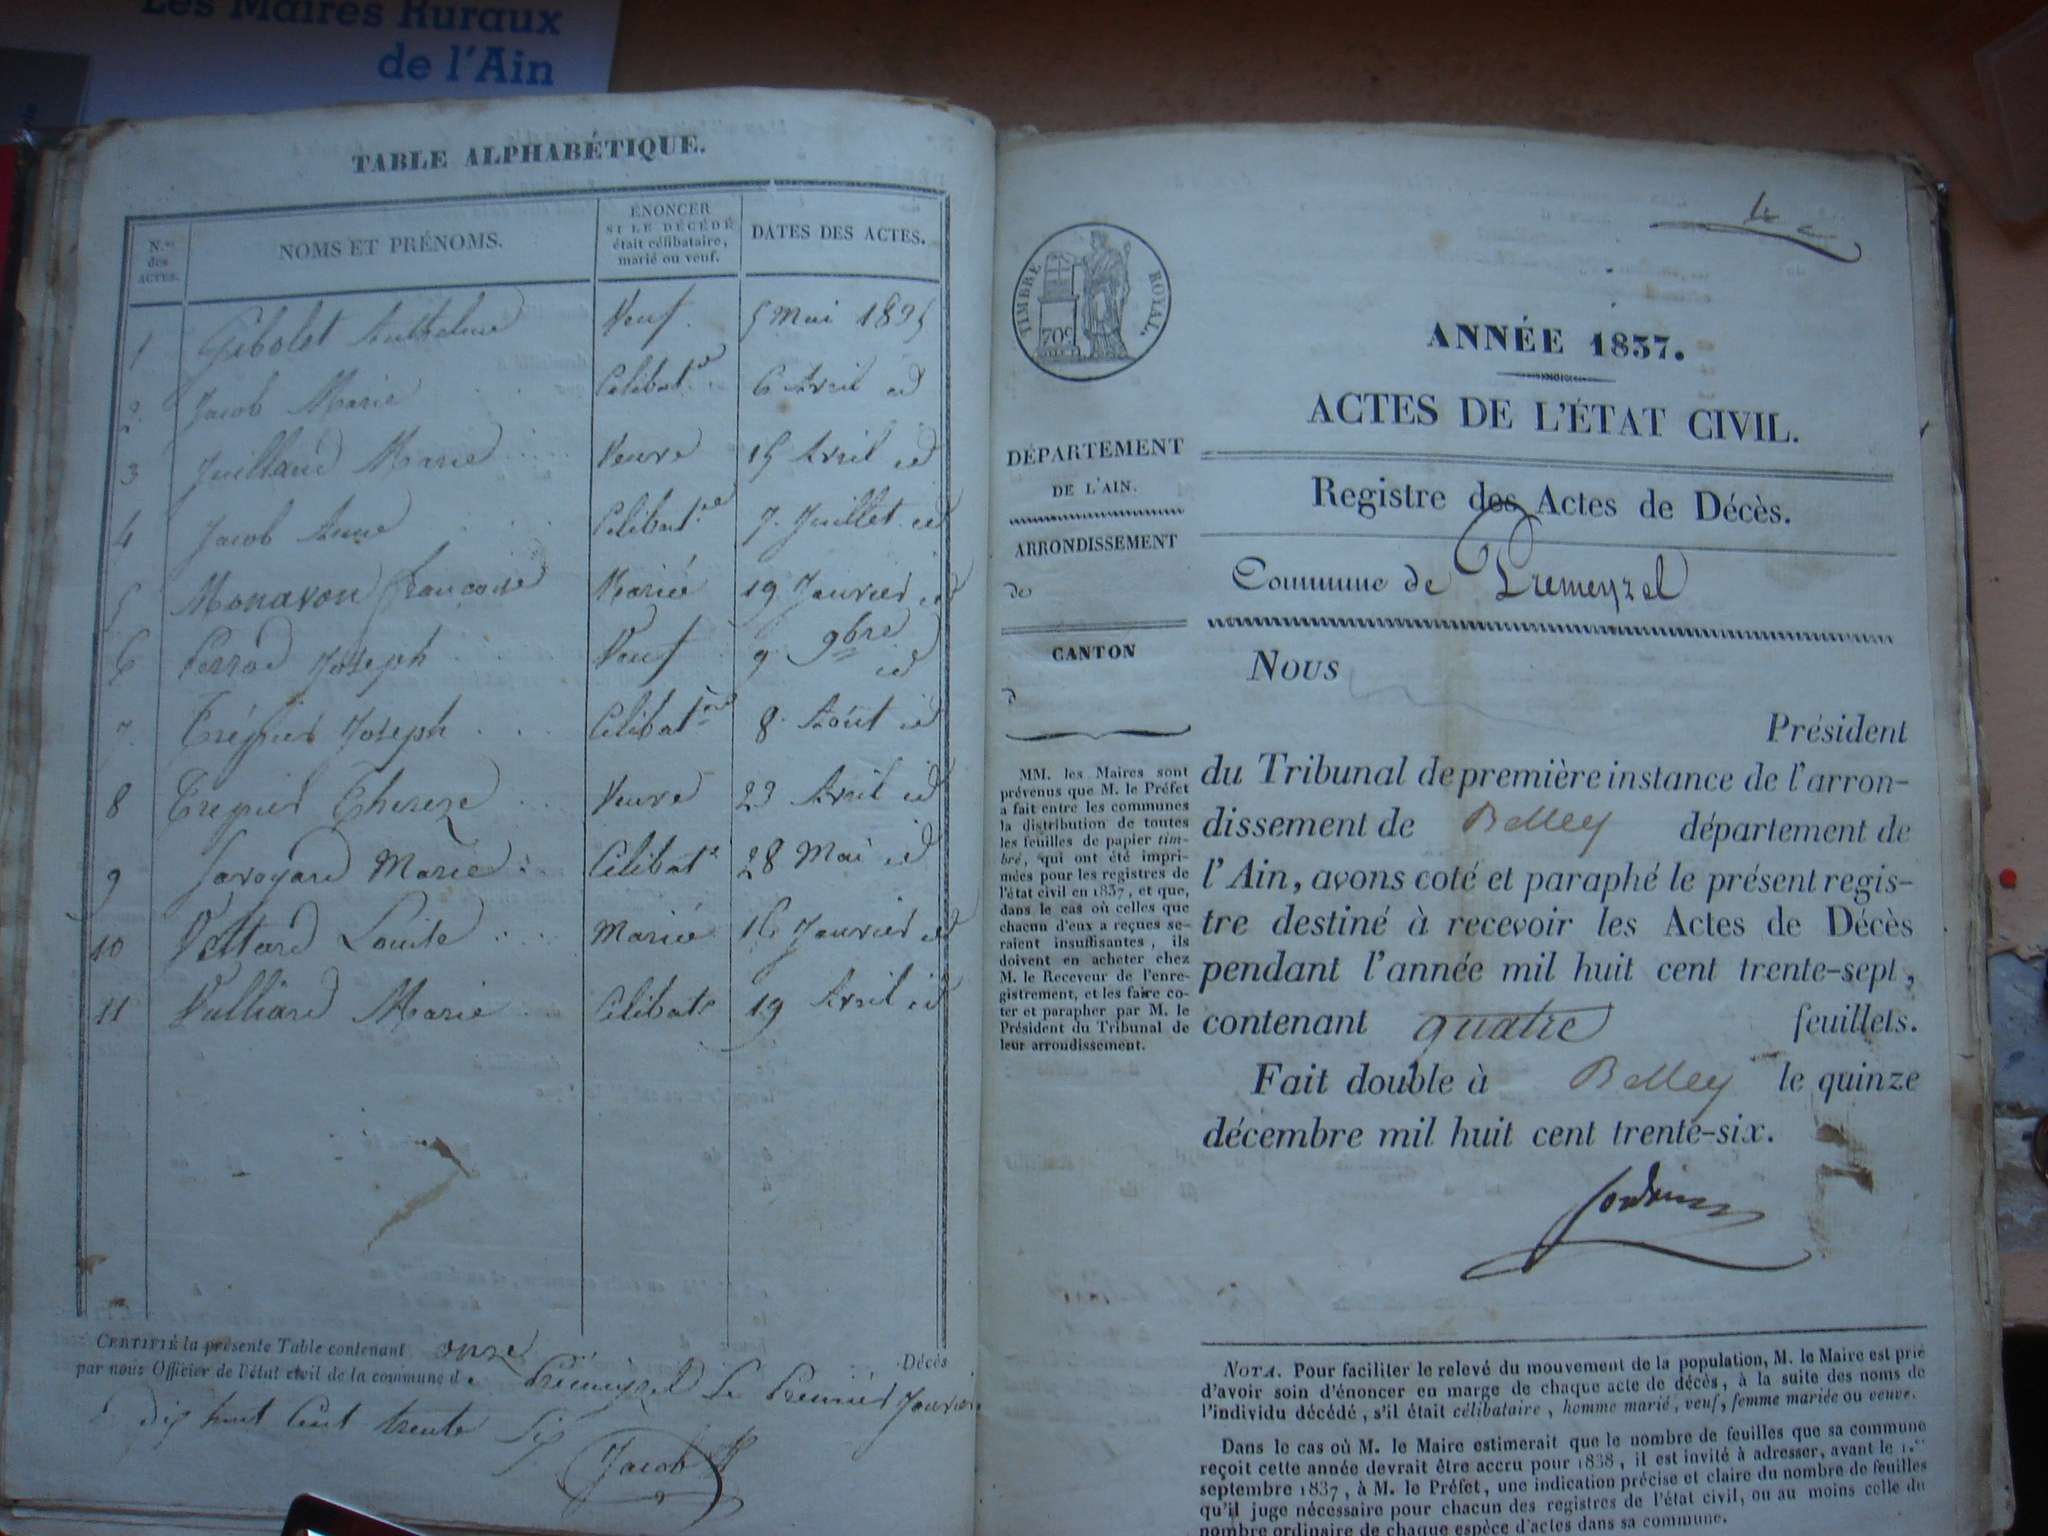 Les Maires Ruraux
de l'Ain
TABLE ALPHABÉTIQUE.
N.os des ACTES.
NOMS ET PRÉNOMS.
ÉNONCER SI LE DÉCÉDÉ était célibataire, marié ou veuf.
DATES DES ACTES.
1 Gibolet Anthelme Veuf. 5 Mai 1835
2. Jacob Marie Celibat.re 6 Avril id
3 Juilland Marie Veuve 15 Avril id
4 Jacob Anne Celibat.re 7. Juillet id
5 Monavon Françoise Mariée 19 Janvier id
6 Perrod Joseph Veuf 9 9bre id
7. Joseph Célibat.re 8. Août id
8 Thereze Veuve 23 Avril id
9 Savoyard Marie Célibat.e 28 Mai id
10 Vettard Louise Mariée 16 Janvier id
11 Vulliard Marie Célibat.e 19 Avril id
CERTIFIÉ la présente Table contenant onze Décès
par nous Officier de l'état civil de la commune de Prémeyzel Le Premier Janvier
dix huit Cent trente Six
Jacob
TIMBRE ROYAL.
70c
ANNÉE 1837.
ACTES DE L'ÉTAT CIVIL.
Registre des Actes de Décès.
Commune de Premeyzel
DÉPARTEMENT
DE L'AIN.
ARRONDISSEMENT
de
CANTON
d
MM. les Maires sont
prévenus que M. le Préfet
a fait entre les communes
la distribution de toutes
les feuilles de papier tim-
bré, qui ont été impri-
mées pour les registres de
l'état civil en 1837, et que,
dans le cas où celles que
chacun d'eux a reçues se-
raient insuffisantes, ils
doivent en acheter chez
M. le Receveur de l'enre-
gistrement, et les faire co-
ter et parapher par M. le
Président du Tribunal de
leur arrondissement.
Nous
Président
du Tribunal de première instance de l'arron-
dissement de Belley département de
l'Ain, avons coté et paraphé le présent regis-
tre destiné à recevoir les Actes de Décès
pendant l'année mil huit cent trente-sept,
contenant quatre feuillets.
Fait double à Belley le quinze
décembre mil huit cent trente-six.
NOTA. Pour faciliter le relevé du mouvement de la population, M. le Maire est prié
d'avoir soin d'énoncer en marge de chaque acte de décès, à la suite des noms de
l'individu décédé, s'il était célibataire, homme marié, veuf, femme mariée ou veuve.
Dans le cas où M. le Maire estimerait que le nombre de feuilles que sa commune
reçoit cette année devrait être accru pour 1838, il est invité à adresser, avant le 1.er
septembre 1837, à M. le Préfet, une indication précise et claire du nombre de feuilles
qu'il juge nécessaire pour chacun des registres de l'état civil, ou au moins celle du
nombre ordinaire de chaque espèce d'actes dans sa commune.